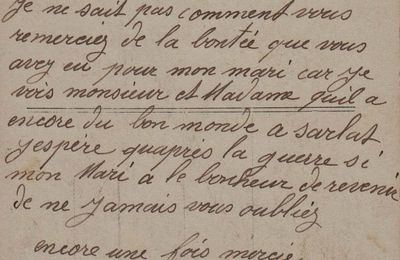 Je ne sait pas comment vous
remerciez de la bontée que vous
avez eu pour mon mari car je
vois monsieur et Madame quil a
encore du bon monde a sarlat
jespere quaprès la guerre si
mon Mari à le bonheur de revenir
de ne jamais vous oubliéz
encore une fois merci